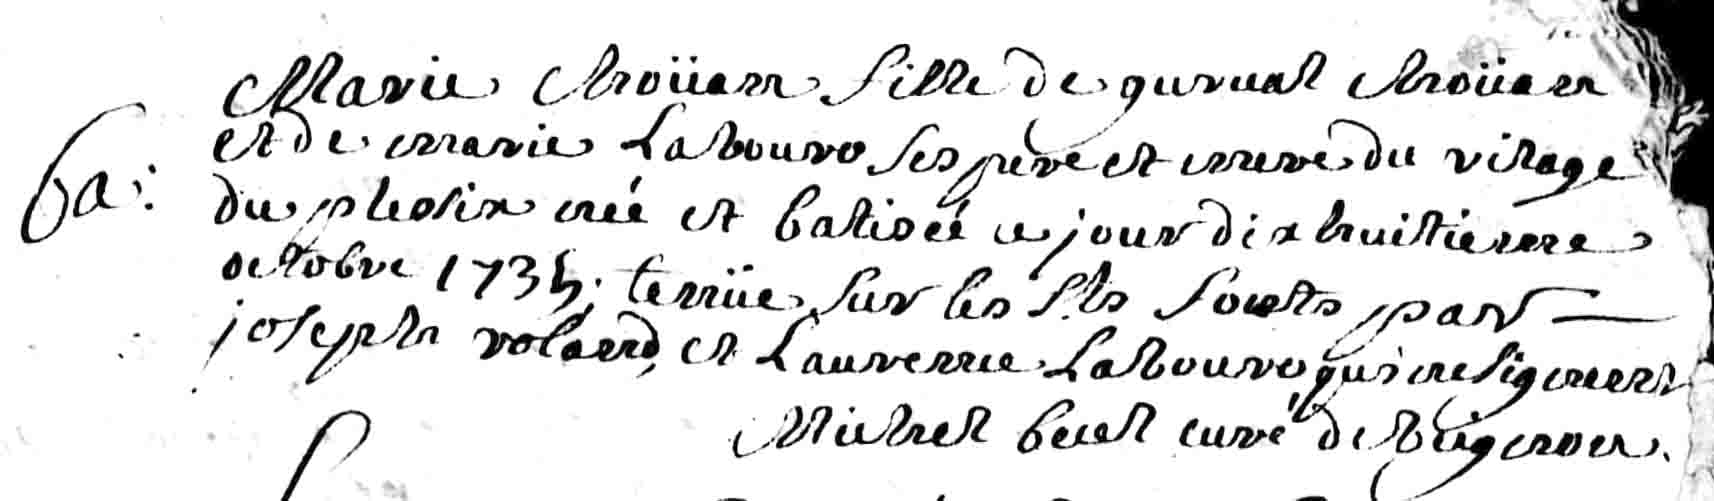 Marie Choüan fille de gurval Choüan
et de marie Labouro ses pere et mere du vilage
ba: du plesix née et batisée ce jour dix huitieme
octobre 1735; tenüe sur les Sts fonts par
joseph volard, et Laurenne Labouro qui ne signent
Michel becel curé de